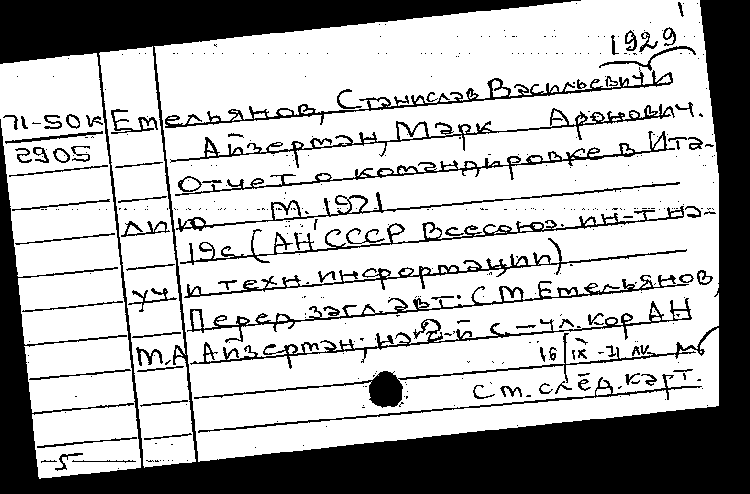 1
1929
71-50к Емельянов, Станислав Васильевич и
2905 Айзерман, Марк Аронович.
Отчет о командировке в Ита-
лию. М., 1971
19с. (АН СССР Всесоюз. ин-т на-
уч. и техн. информации).
Перед загл. авт: С М Емельянов,
М.А Айзерман; на 2-й с. – чл. кор АН
16/IX-71 лк
См. след. карт.
5